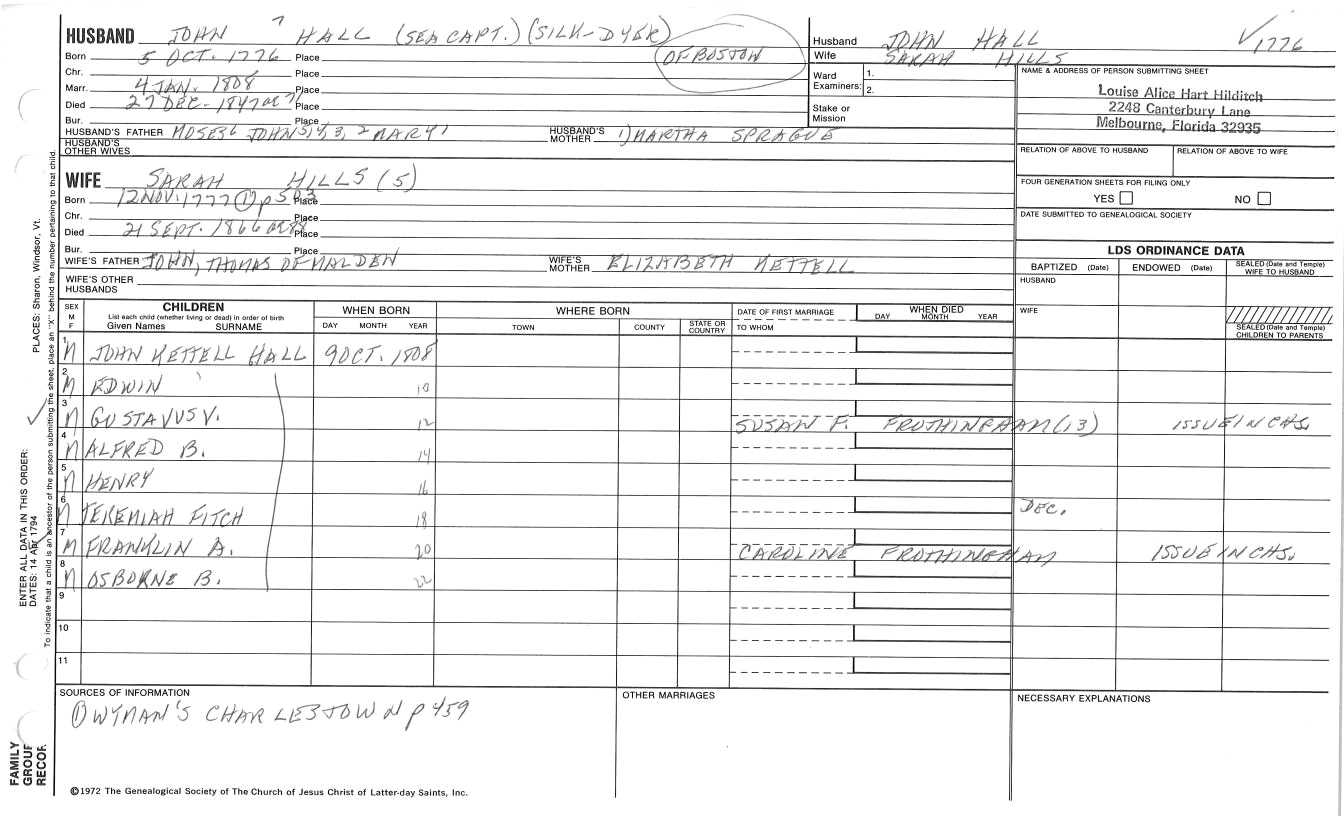 HUSBAND JOHN 7 HALL (SEA CAPT.) (SILK-DYER)
Born 5 OCT. 1776 Place OF BOSTON
Chr. Place
Marr. 4 JAN. 1808 Place
Died 27 DEC. 1847 OR 7 Place
Bur. Place
HUSBAND'S FATHER MOSES6 JOHN 5, 4, 3, 2 MARY1 HUSBAND'S MOTHER 1) MARTHA SPRAGUE
HUSBAND'S OTHER WIVES
Husband JOHN HALL √1776
Wife SARAH HILLS
Ward 1.
Examiners: 2.
Stake or Mission
NAME & ADDRESS OF PERSON SUBMITTING SHEET
Louise Alice Hart Hilditch
2248 Canterbury Lane
Melbourne, Florida 32935
RELATION OF ABOVE TO HUSBAND RELATION OF ABOVE TO WIFE
FOUR GENERATION SHEETS FOR FILING ONLY
YES NO
DATE SUBMITTED TO GENEALOGICAL SOCIETY
WIFE SARAH HILLS (5)
Born 12 NOV. 1777 (1) p 503 Place
Chr. Place
Died 21 SEPT. 1866 OR 88 Place
Bur. Place
WIFE'S FATHER JOHN, THOMAS OF MALDEN WIFE'S MOTHER ELIZABETH KETTELL
WIFE'S OTHER HUSBANDS
LDS ORDINANCE DATA
BAPTIZED (Date) ENDOWED (Date) SEALED (Date and Temple) WIFE TO HUSBAND
HUSBAND
WIFE
SEALED (Date and Temple) CHILDREN TO PARENTS
SEX M F CHILDREN WHEN BORN WHERE BORN DATE OF FIRST MARRIAGE WHEN DIED
List each child (whether living or dead) in order of birth
Given Names SURNAME DAY MONTH YEAR TOWN COUNTY STATE OR COUNTRY TO WHOM DAY MONTH YEAR
1 M JOHN KETTELL HALL 9 OCT. 1808
2 M EDWIN 10
3 M GUSTAVUS V. 12 SUSAN F. FROTHINGHAM (13) ISSUE IN CHS.
4 M ALFRED B. 14
5 M HENRY 16
6 M JEREMIAH FITCH 18 DEC.
7 M FRANKLIN A. 20 CAROLINE FROTHINGHAM ISSUE IN CHS.
8 M OSBORNE B. 22
9
10
11
SOURCES OF INFORMATION
(1) WYMAN'S CHARLESTOWN p 459
OTHER MARRIAGES
NECESSARY EXPLANATIONS
©1972 The Genealogical Society of The Church of Jesus Christ of Latter-day Saints, Inc.
FAMILY GROUP RECOR
ENTER ALL DATA IN THIS ORDER:
DATES: 14 Apr 1794
PLACES: Sharon, Windsor, Vt.
To indicate that a child is an ancestor of the person submitting the sheet, place an "X" behind the number pertaining to that child.